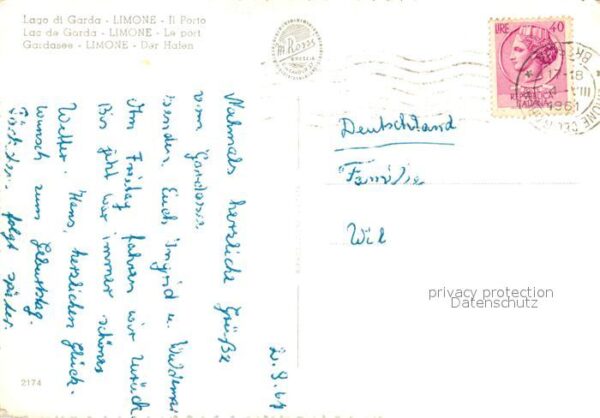 Lago di Garda - LIMONE - Il Porto
Lac de Garda - LIMONE - Le port
Gardasee - LIMONE - Der Hafen
Rossi
BRESCIA
LIRE 40
REPUBBLICA ITALIANA
17-18
VIII
1961
2.8.61
Nahmals herzliche Grüße
vom Gardasee
senden Euch Ingrid u.
Am Freitag fahren wir zurück
Bis jetzt war immer schönes
Wetter. Hans, herzlichen Glück-
wunsch zum Geburtstag.
folgt später.
Deutschland
Familie
Wil
privacy protection
Datenschutz
2174